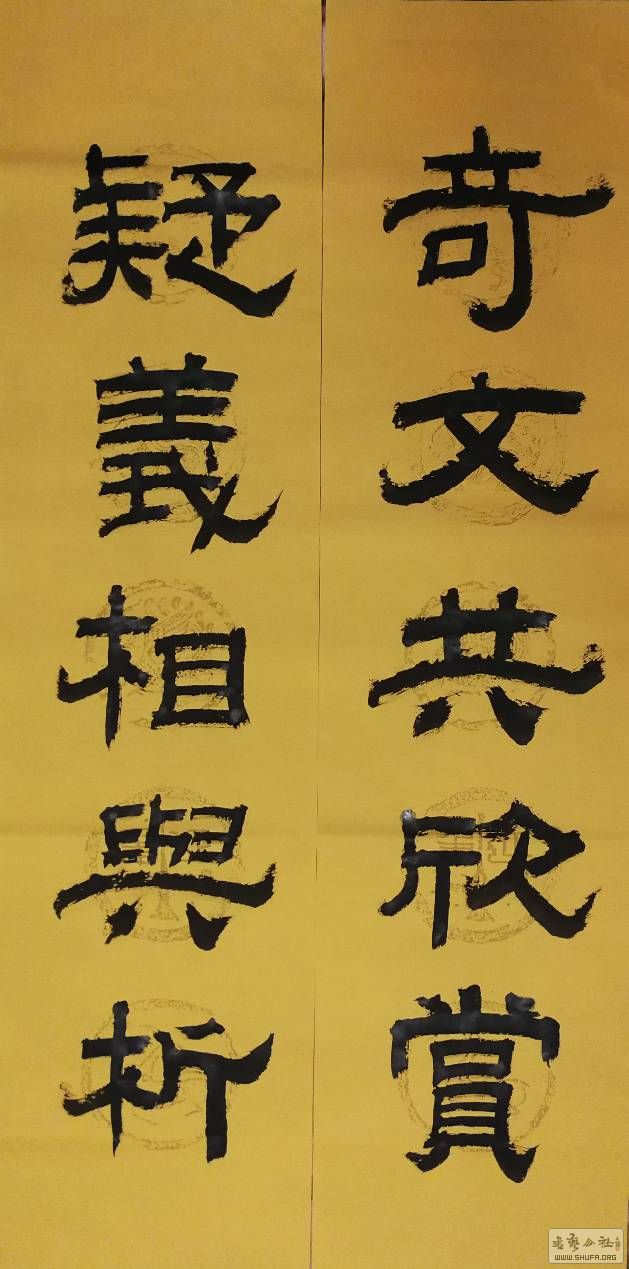 奇文共欣賞
疑義相與析
WWW.SHUFA.ORG